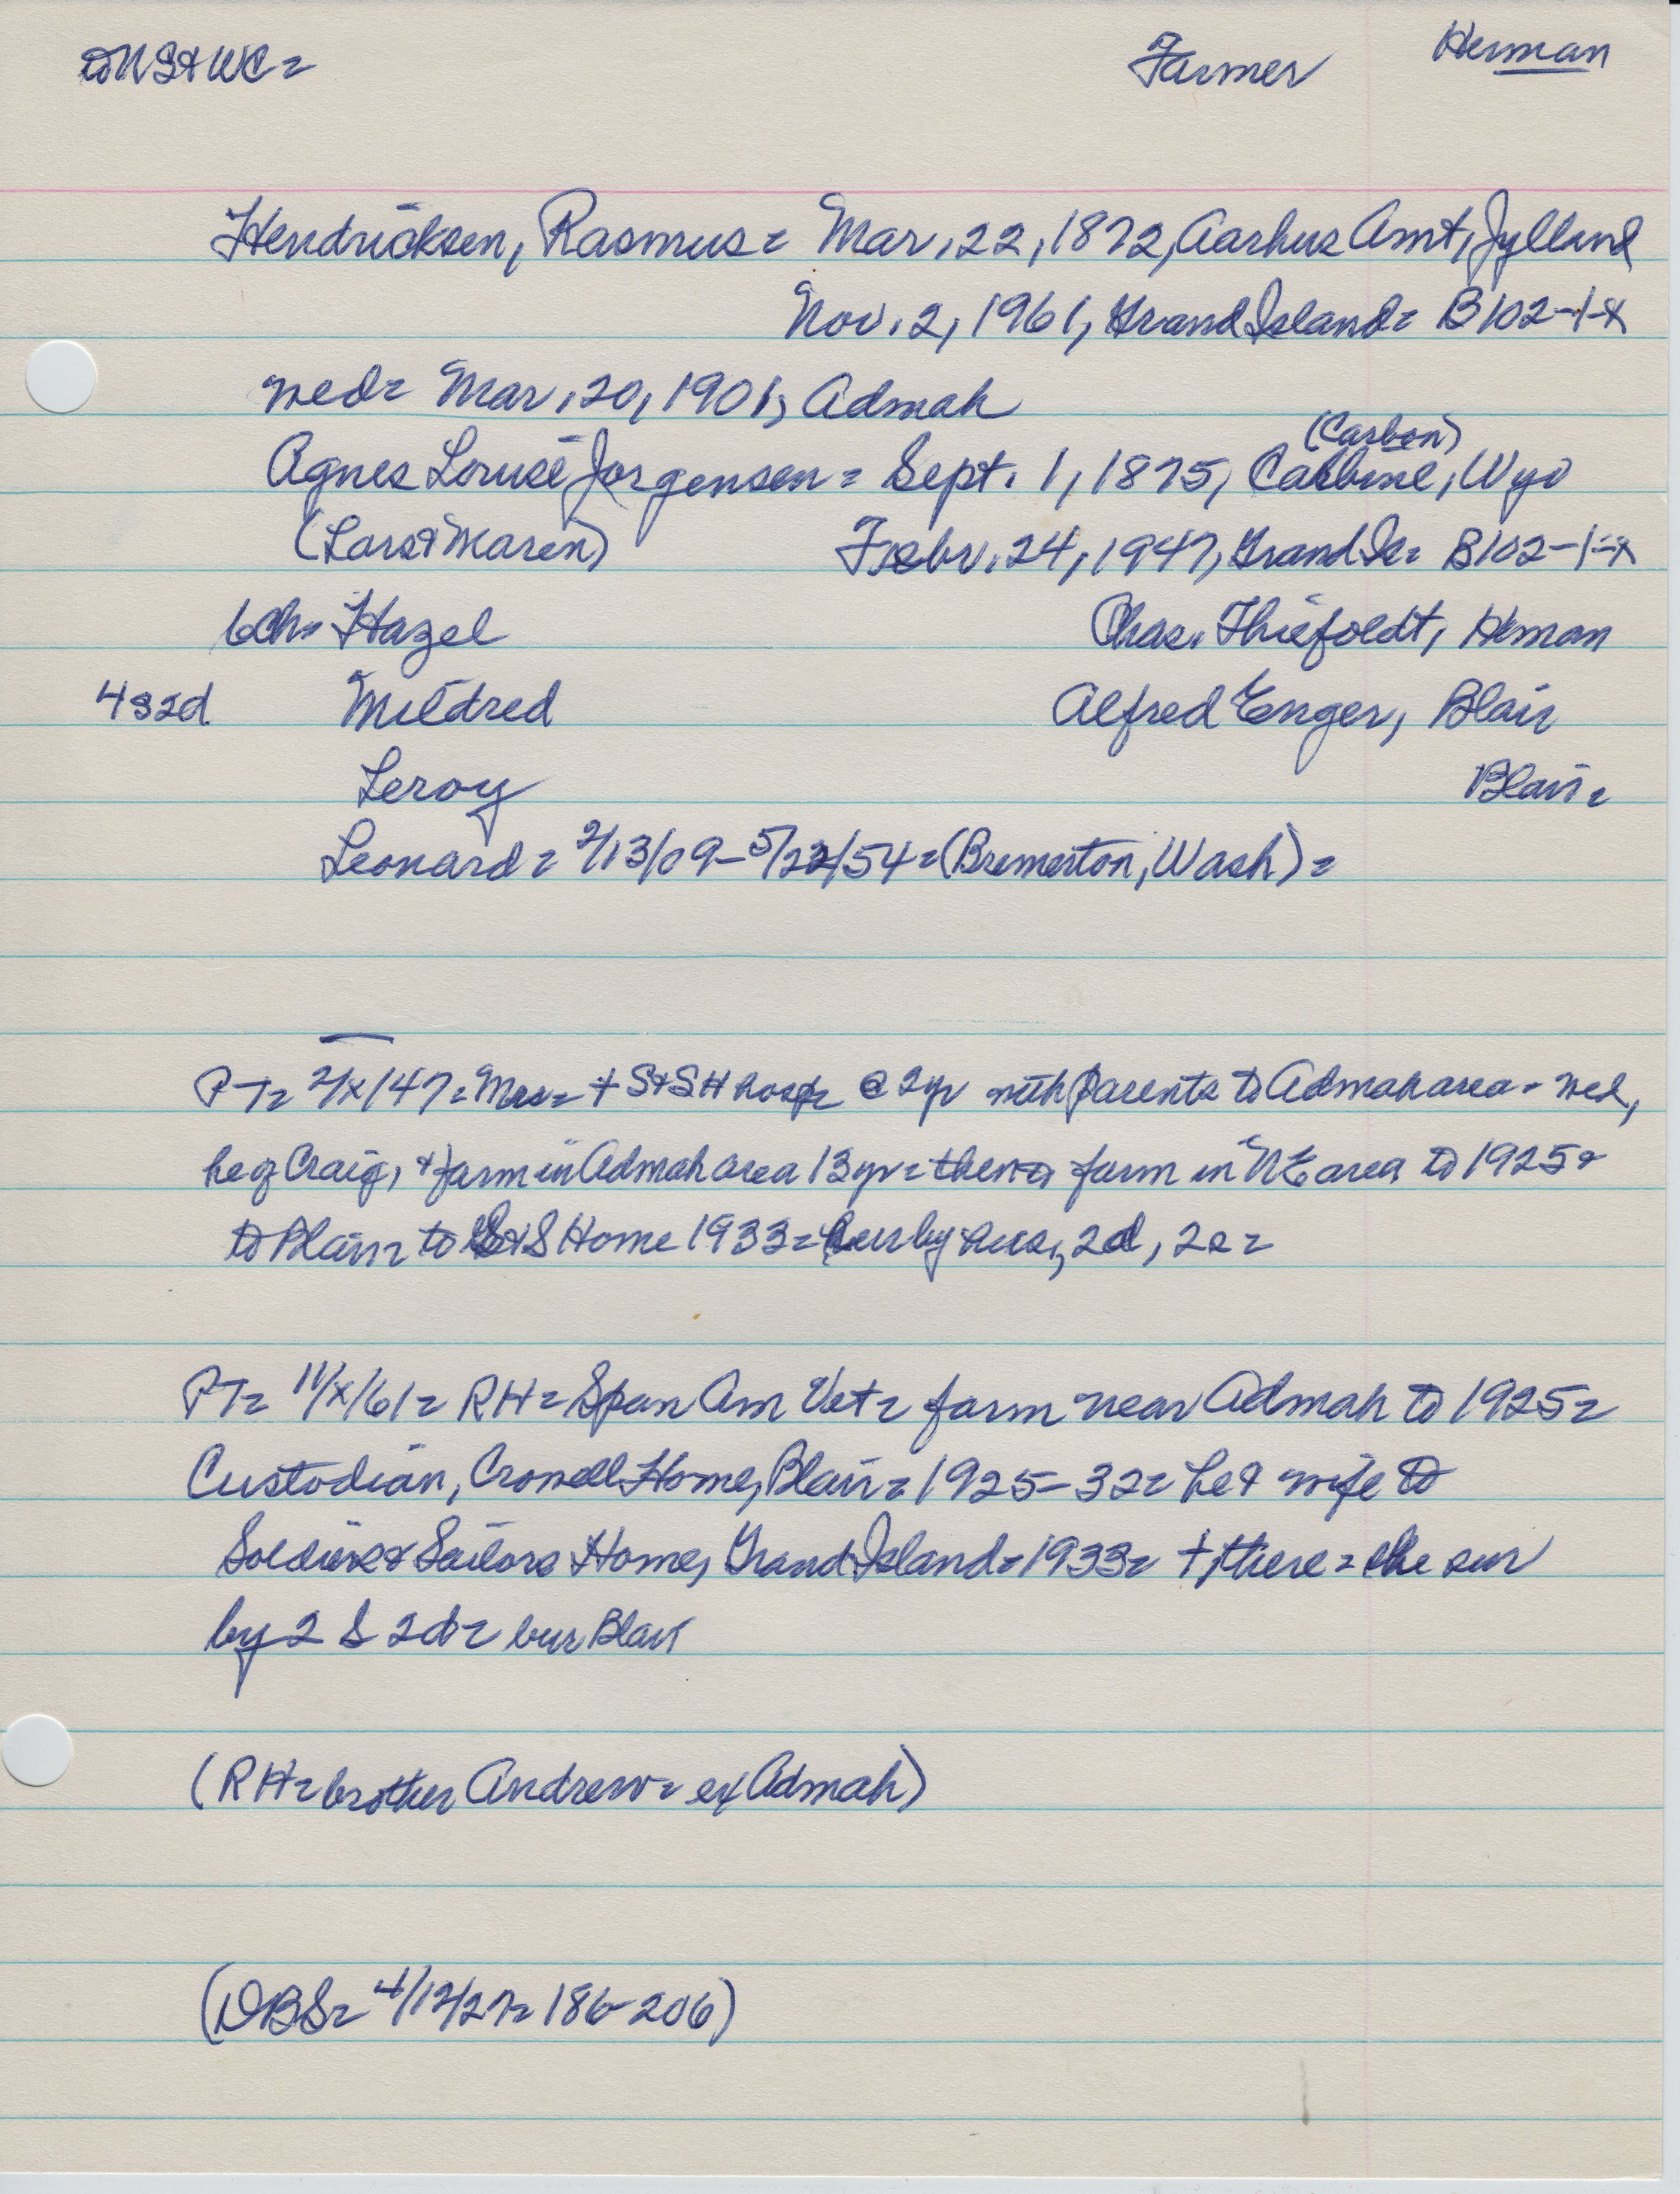 to US & WC = Farmer Herman
Hendricksen, Rasmus = Mar. 22, 1872, Aarhus Amt, Jylland
Nov. 2, 1961, Grand Island = B102-1-x
wed = Mar. 20, 1901, Admah
(Carbon)
Agnes Louise Jorgensen = Sept. 1, 1875, Carbine, Wyo
(Lars & Maren) Febr. 24, 1947, Grand Is = B102-1-x
6ch = Hazel Chas. Thiefoldt, Herman
4s2d. Mildred Alfred Enger, Blair
Leroy Blair =
Leonard = 2/13/09 - 5/22/54 = (Bremerton, Wash) =
PT = 2/x/47 = Mrs = + S&SH hosp = @ 2yr with parents to Admah area = wed,
he of Craig, & farm in Admah area 13yr = then to farm in NE area to 1925 &
to Blair = to S&S Home 1933 = sur by hus, 2d, 2s =
PT = 11/x/61 = RH = Span Am Vet = farm near Admah to 1925 =
Custodian, Crowell Home, Blair = 1925-32 = he & wife to
Soldiers & Sailors Home, Grand Island = 1933 = +, there = she sur
by 2 S 2d = bur Blair
(RH = brother Andrew = ex Admah)
(DBS = 4/12/27 = 186-206)